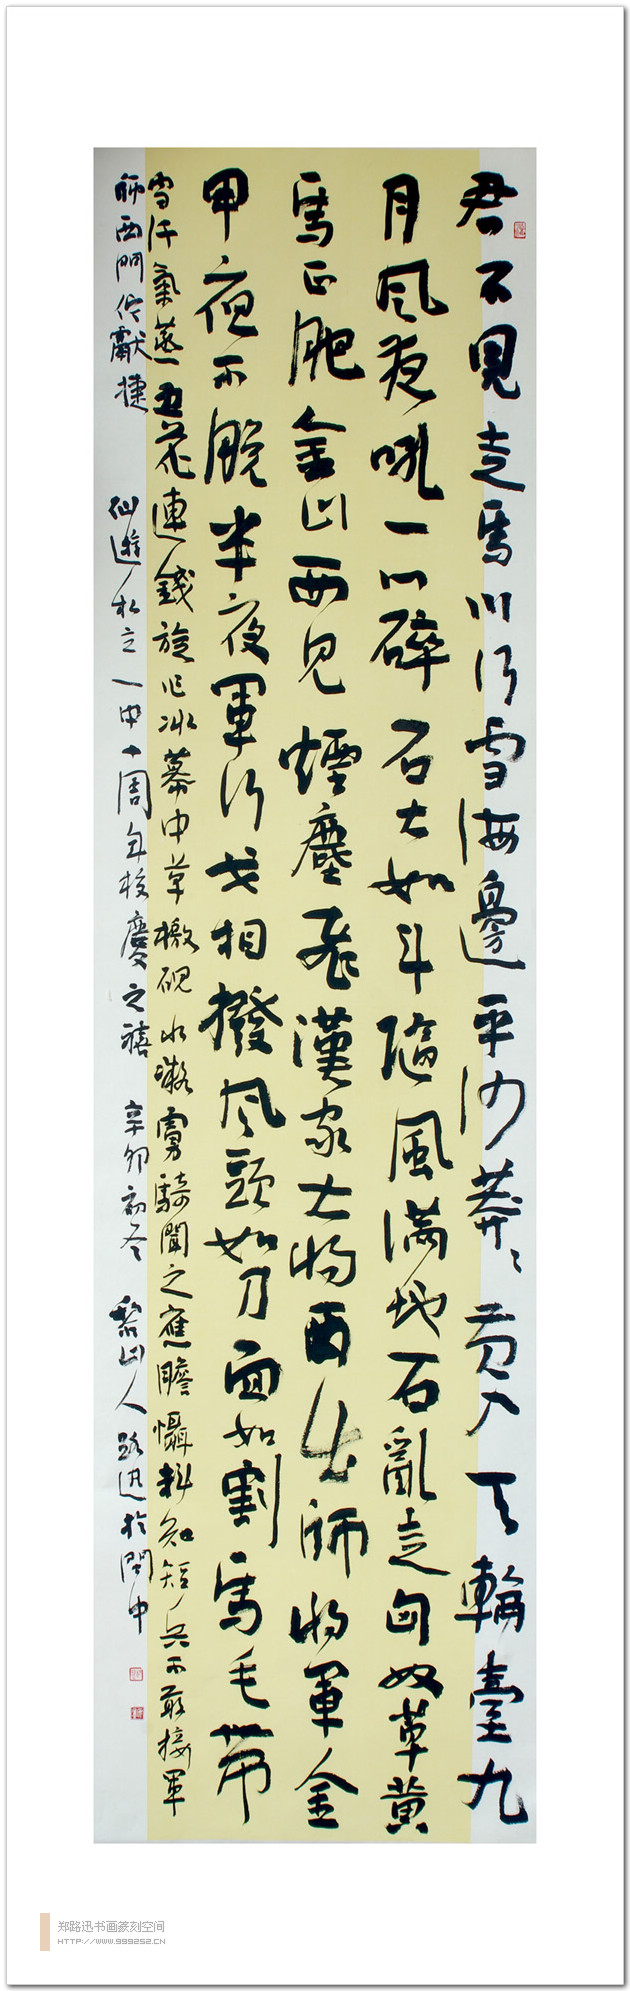 君不見走馬川行雪海邊平沙莽〻黃入天輪臺九
月風夜吼一川碎石大如斗隨風滿地石亂走匈奴草黃
馬正肥金山西見煙塵飛漢家大將西出師將軍金
甲夜不脫半夜軍行戈相撥風頭如刀面如割馬毛帶
雪汗氣蒸五花連錢旋作冰幕中草檄硯水凝虜騎聞之應膽懾料知短兵不敢接軍
師西門佇獻捷
仙遊私立一中十周年校慶之禧 辛卯初冬 山人路迅於閩中
郑路迅书画篆刻空间
HTTP://WWW.999252.CN